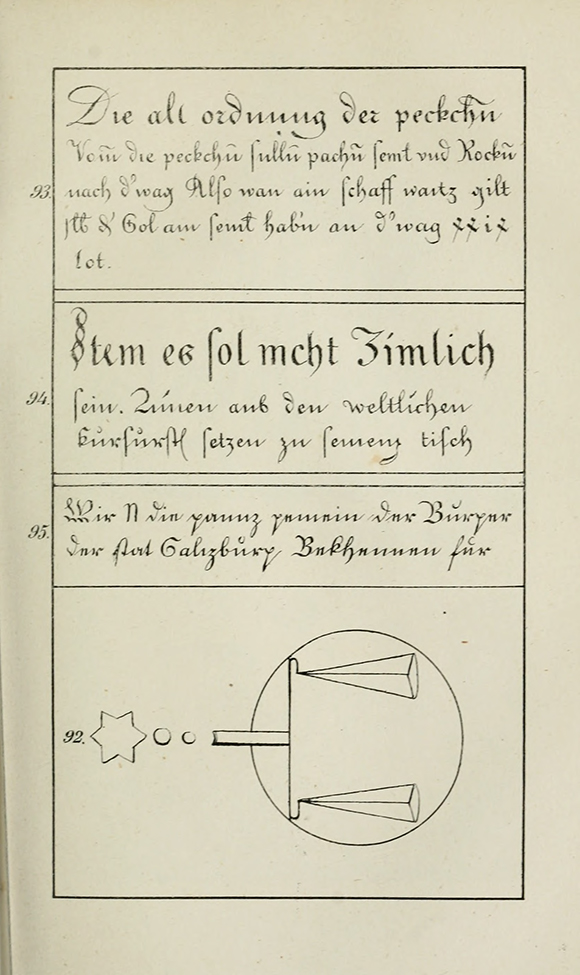 Die alt ordnung der peckchn̄
Wom̄ die peckchn̄ sulln̄ pachn̄ semł vnd Rockn̄
93. nach d'wag Also wan ain schaff waitz gilt
Sol am semł habn an d'wag xxix
lot.
Item es sol nicht Zimlich
94. sein. Ainen aus den weltlichen
kurfurstl setzen zu seinem tisch
Wir N die gannz gemein der Burger
95. der stat Salzburg Bekhennen für
92.